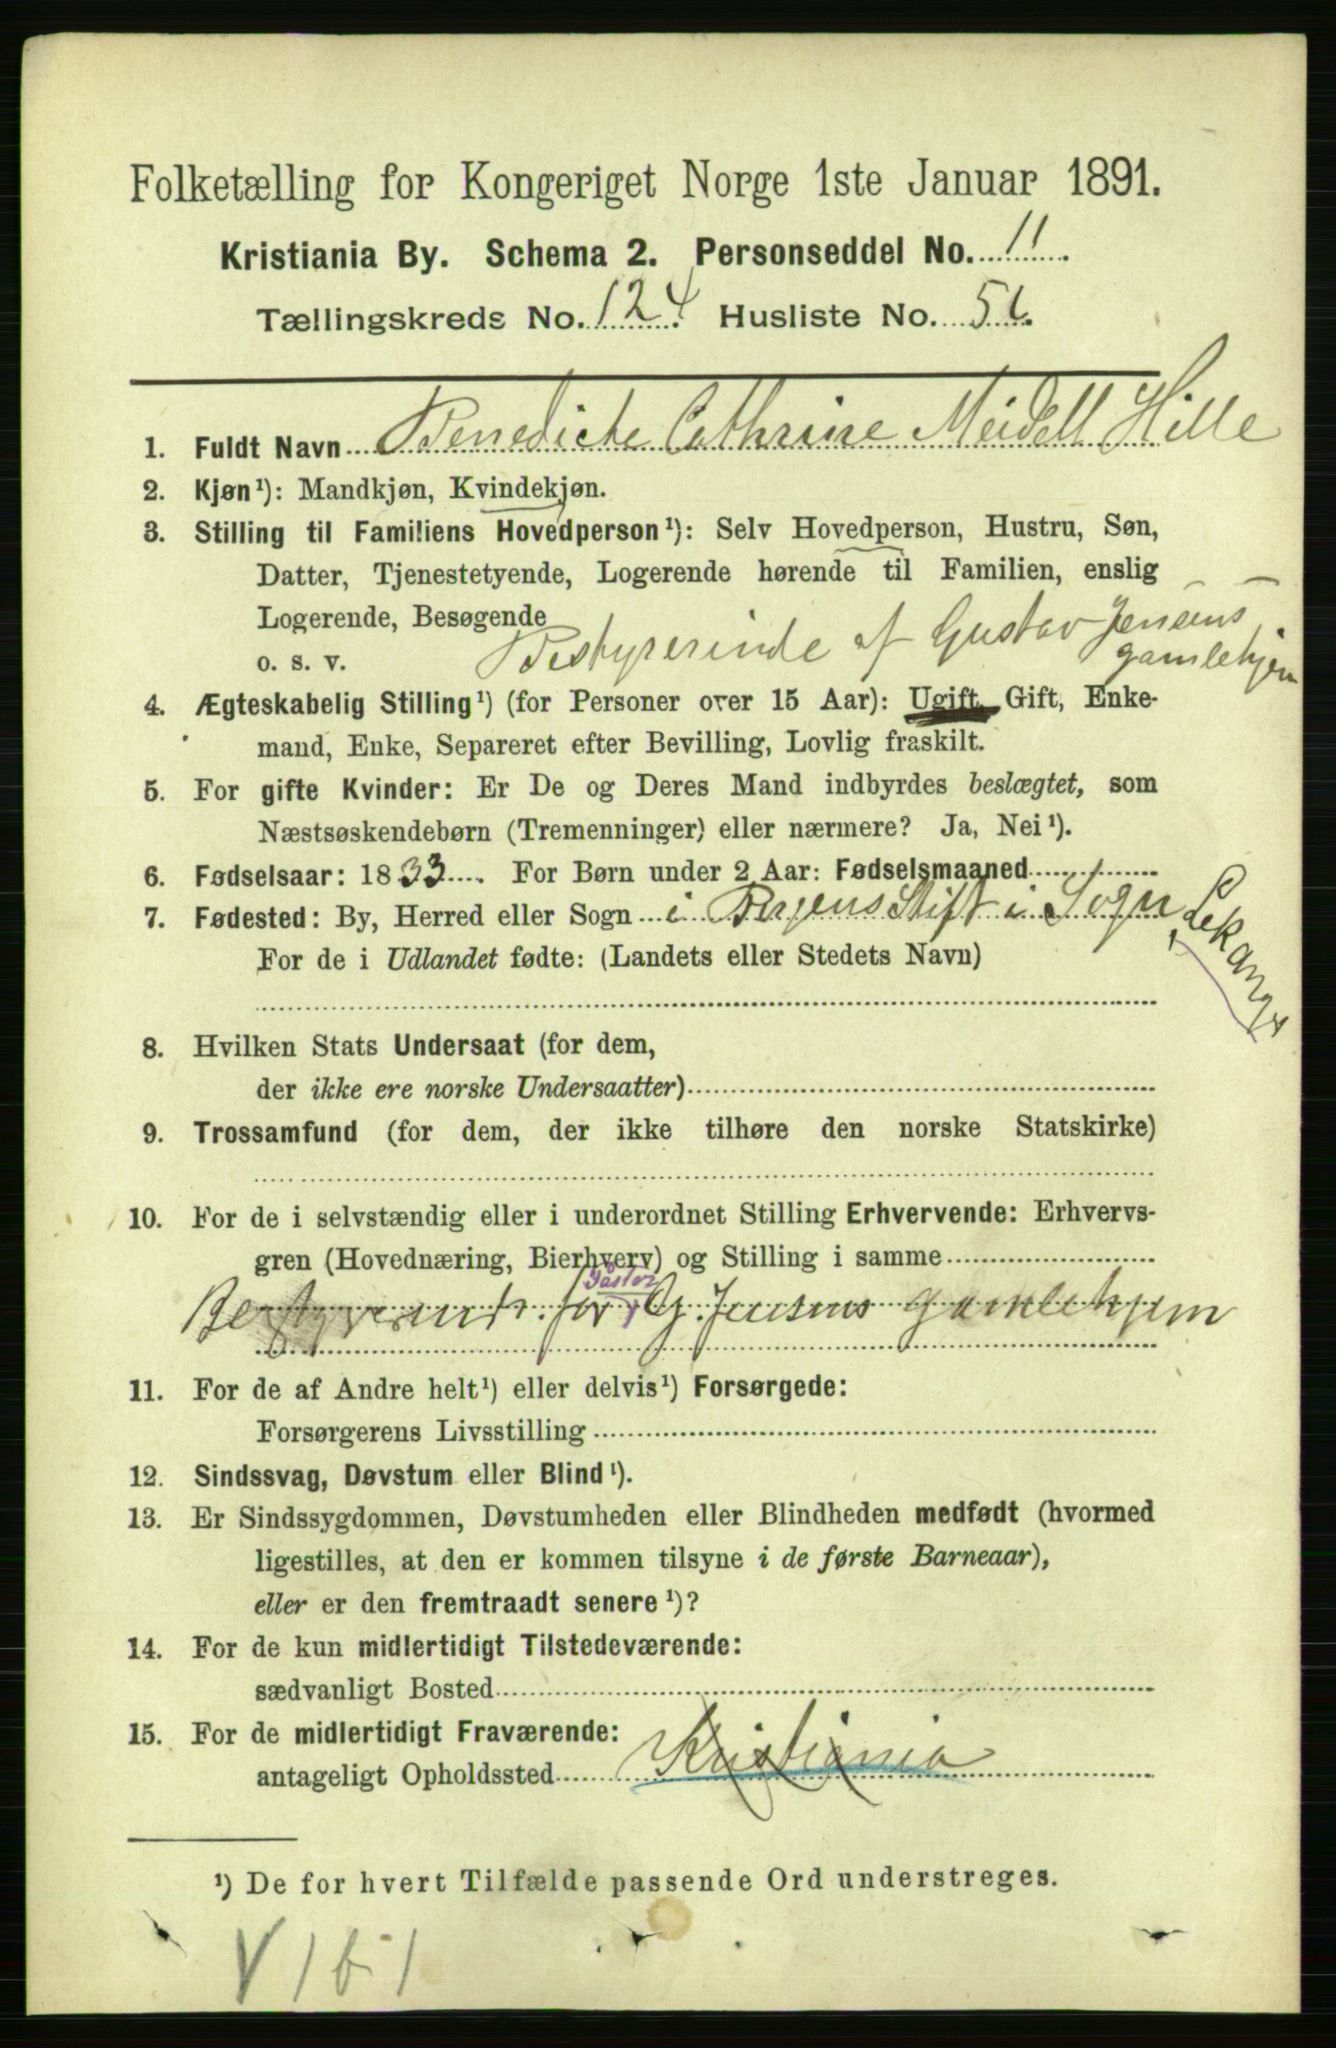 Folketælling for Kongeriget Norge 1ste Januar 1891.
Kristiania By. Schema 2. Personseddel No. 11.
Tællingskreds No. 124. Husliste No.
1. Fuldt Navn Benedicte Cathrine Meidell Hille
2. Kjøn¹): Mandkjøn, Kvindekjøn.
3. Stilling til Familiens Hovedperson¹): Selv Hovedperson, Hustru, Søn,
Datter, Tjenestetyende, Logerende hørende til Familien, enslig
Logerende, Besøgende
o. s. v. Bestyrerinde af Gustav Jensens
gamlehjem
4. Ægteskabelig Stilling¹) (for Personer over 15 Aar): Ugift, Gift, Enke-
mand, Enke, Separeret efter Bevilling, Lovlig fraskilt.
5. For gifte Kvinder: Er De og Deres Mand indbyrdes beslægtet, som
Næstsøskendebørn (Tremenninger) eller nærmere? Ja, Nei¹).
6. Fødselsaar: 1833. For Børn under 2 Aar: Fødselsmaaned
7. Fødested: By, Herred eller Sogn i Bergens Stift i Sogn, Lekanger
For de i Udlandet fødte: (Landets eller Stedets Navn)
8. Hvilken Stats Undersaat (for dem,
der ikke ere norske Undersaatter)
9. Trossamfund (for dem, der ikke tilhøre den norske Statskirke)
10. For de i selvstændig eller i underordnet Stilling Erhvervende: Erhvervs-
gren (Hovednæring, Bierhverv) og Stilling i samme
for G. Jensens gamlehjem
11. For de af Andre helt¹) eller delvis¹) Forsørgede:
Forsørgerens Livsstilling
12. Sindssvag, Døvstum eller Blind¹).
13. Er Sindssygdommen, Døvstumheden eller Blindheden medfødt (hvormed
ligestilles, at den er kommen tilsyne i de første Barneaar),
eller er den fremtraadt senere¹)?
14. For de kun midlertidigt Tilstedeværende:
sædvanligt Bosted
15. For de midlertidigt Fraværende:
antageligt Opholdssted Kristiania
¹) De for hvert Tilfælde passende Ord understreges.